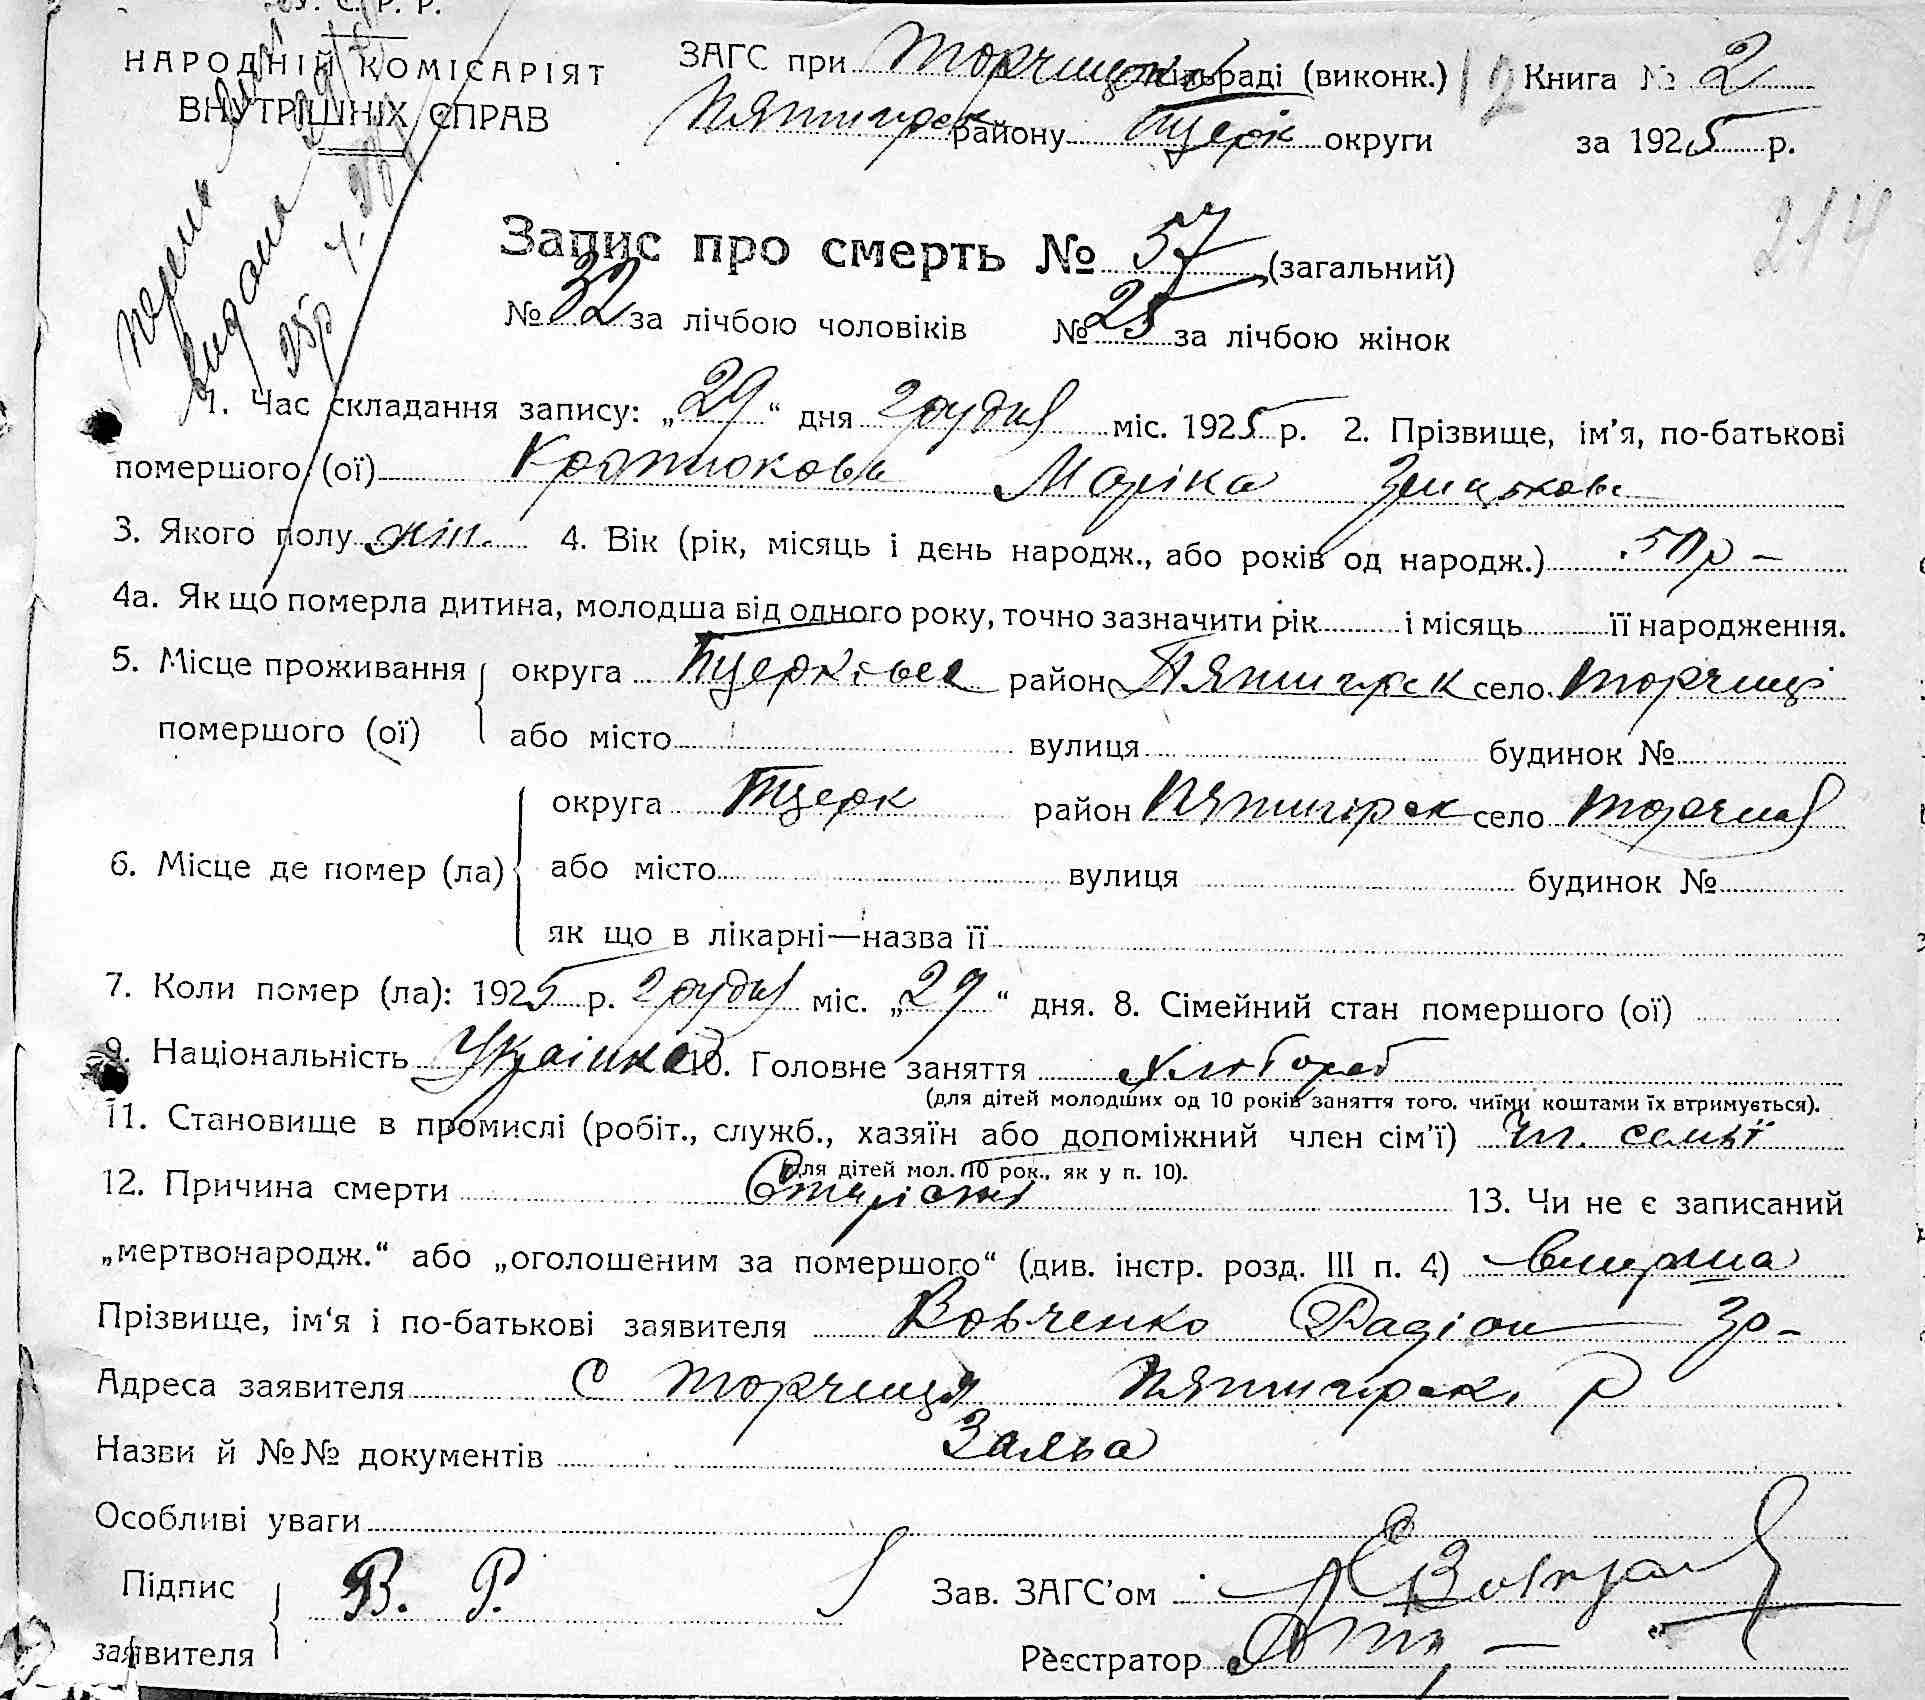 У. С. Р. Р.
НАРОДНІЙ КОМІСАРІЯТ
ВНУТРІШНІХ СПРАВ
ЗАГС при Торчицькій сільраді (виконк.) 12 Книга № 2
Пятигорск району Бцерк округи за 1925 р.
214
Запис про смерть № 57 (загальний)
№ 32 за лічбою чоловіків № 25 за лічбою жінок
1. Час складання запису: „29“ дня грудня міс. 1925 р. 2. Прізвище, ім’я, по-батькові
помершого (ої) Маріка
3. Якого полу жін. 4. Вік (рік, місяць і день народж., або років од народж.)
4а. Як що померла дитина, молодша від одного року, точно зазначити рік і місяць її народження.
5. Місце проживання помершого (ої) округа Бцерківск район Пятигорск село Торчиці
або місто вулиця будинок №
6. Місце де помер (ла) округа Бцерк район Пятигорск село Торчиця
або місто вулиця будинок №
як що в лікарні—назва її
7. Коли помер (ла): 1925 р. грудня міс. „29“ дня. 8. Сімейний стан помершого (ої)
9. Національність Українка 10. Головне заняття хлібороб
(для дітей молодших од 10 років заняття того, чиїми коштами їх втримується).
11. Становище в промислі (робіт., служб., хазяїн або допоміжний член сім’ї) чл. семьї
(для дітей мол. 10 рок., як у п. 10).
12. Причина смерти 13. Чи не є записаний
„мертвонародж.“ або „оголошеним за помершого“ (див. інстр. розд. III п. 4) вмерша
Прізвище, ім‘я і по-батькові заявителя Вовченко Радіон
Адреса заявителя с Торчиця Пятигорск. р
Назви й №№ документів Заява
Особливі уваги
Підпис заявителя В. Р. Зав. ЗАГС’ом
Реєстратор